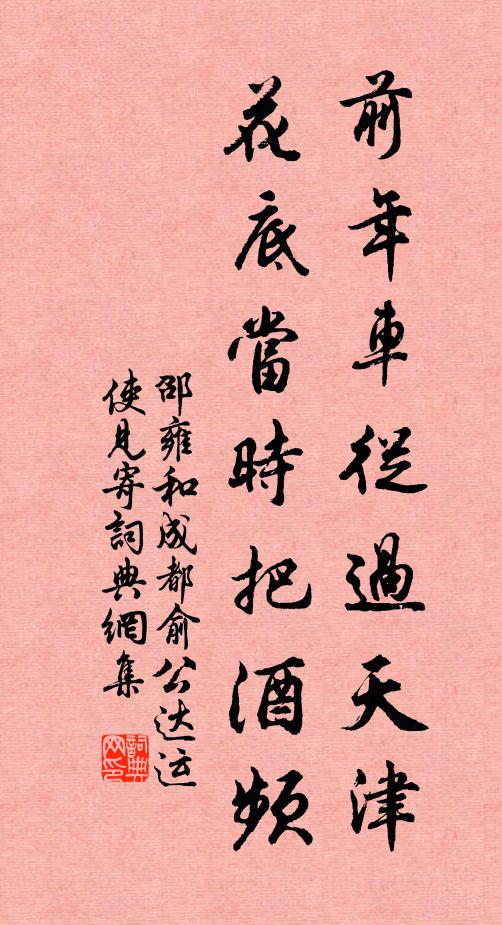 前年車從過天津
花底當時把酒頻
邵雍和成都俞公达运
使見寄詞典網集
詞典网印